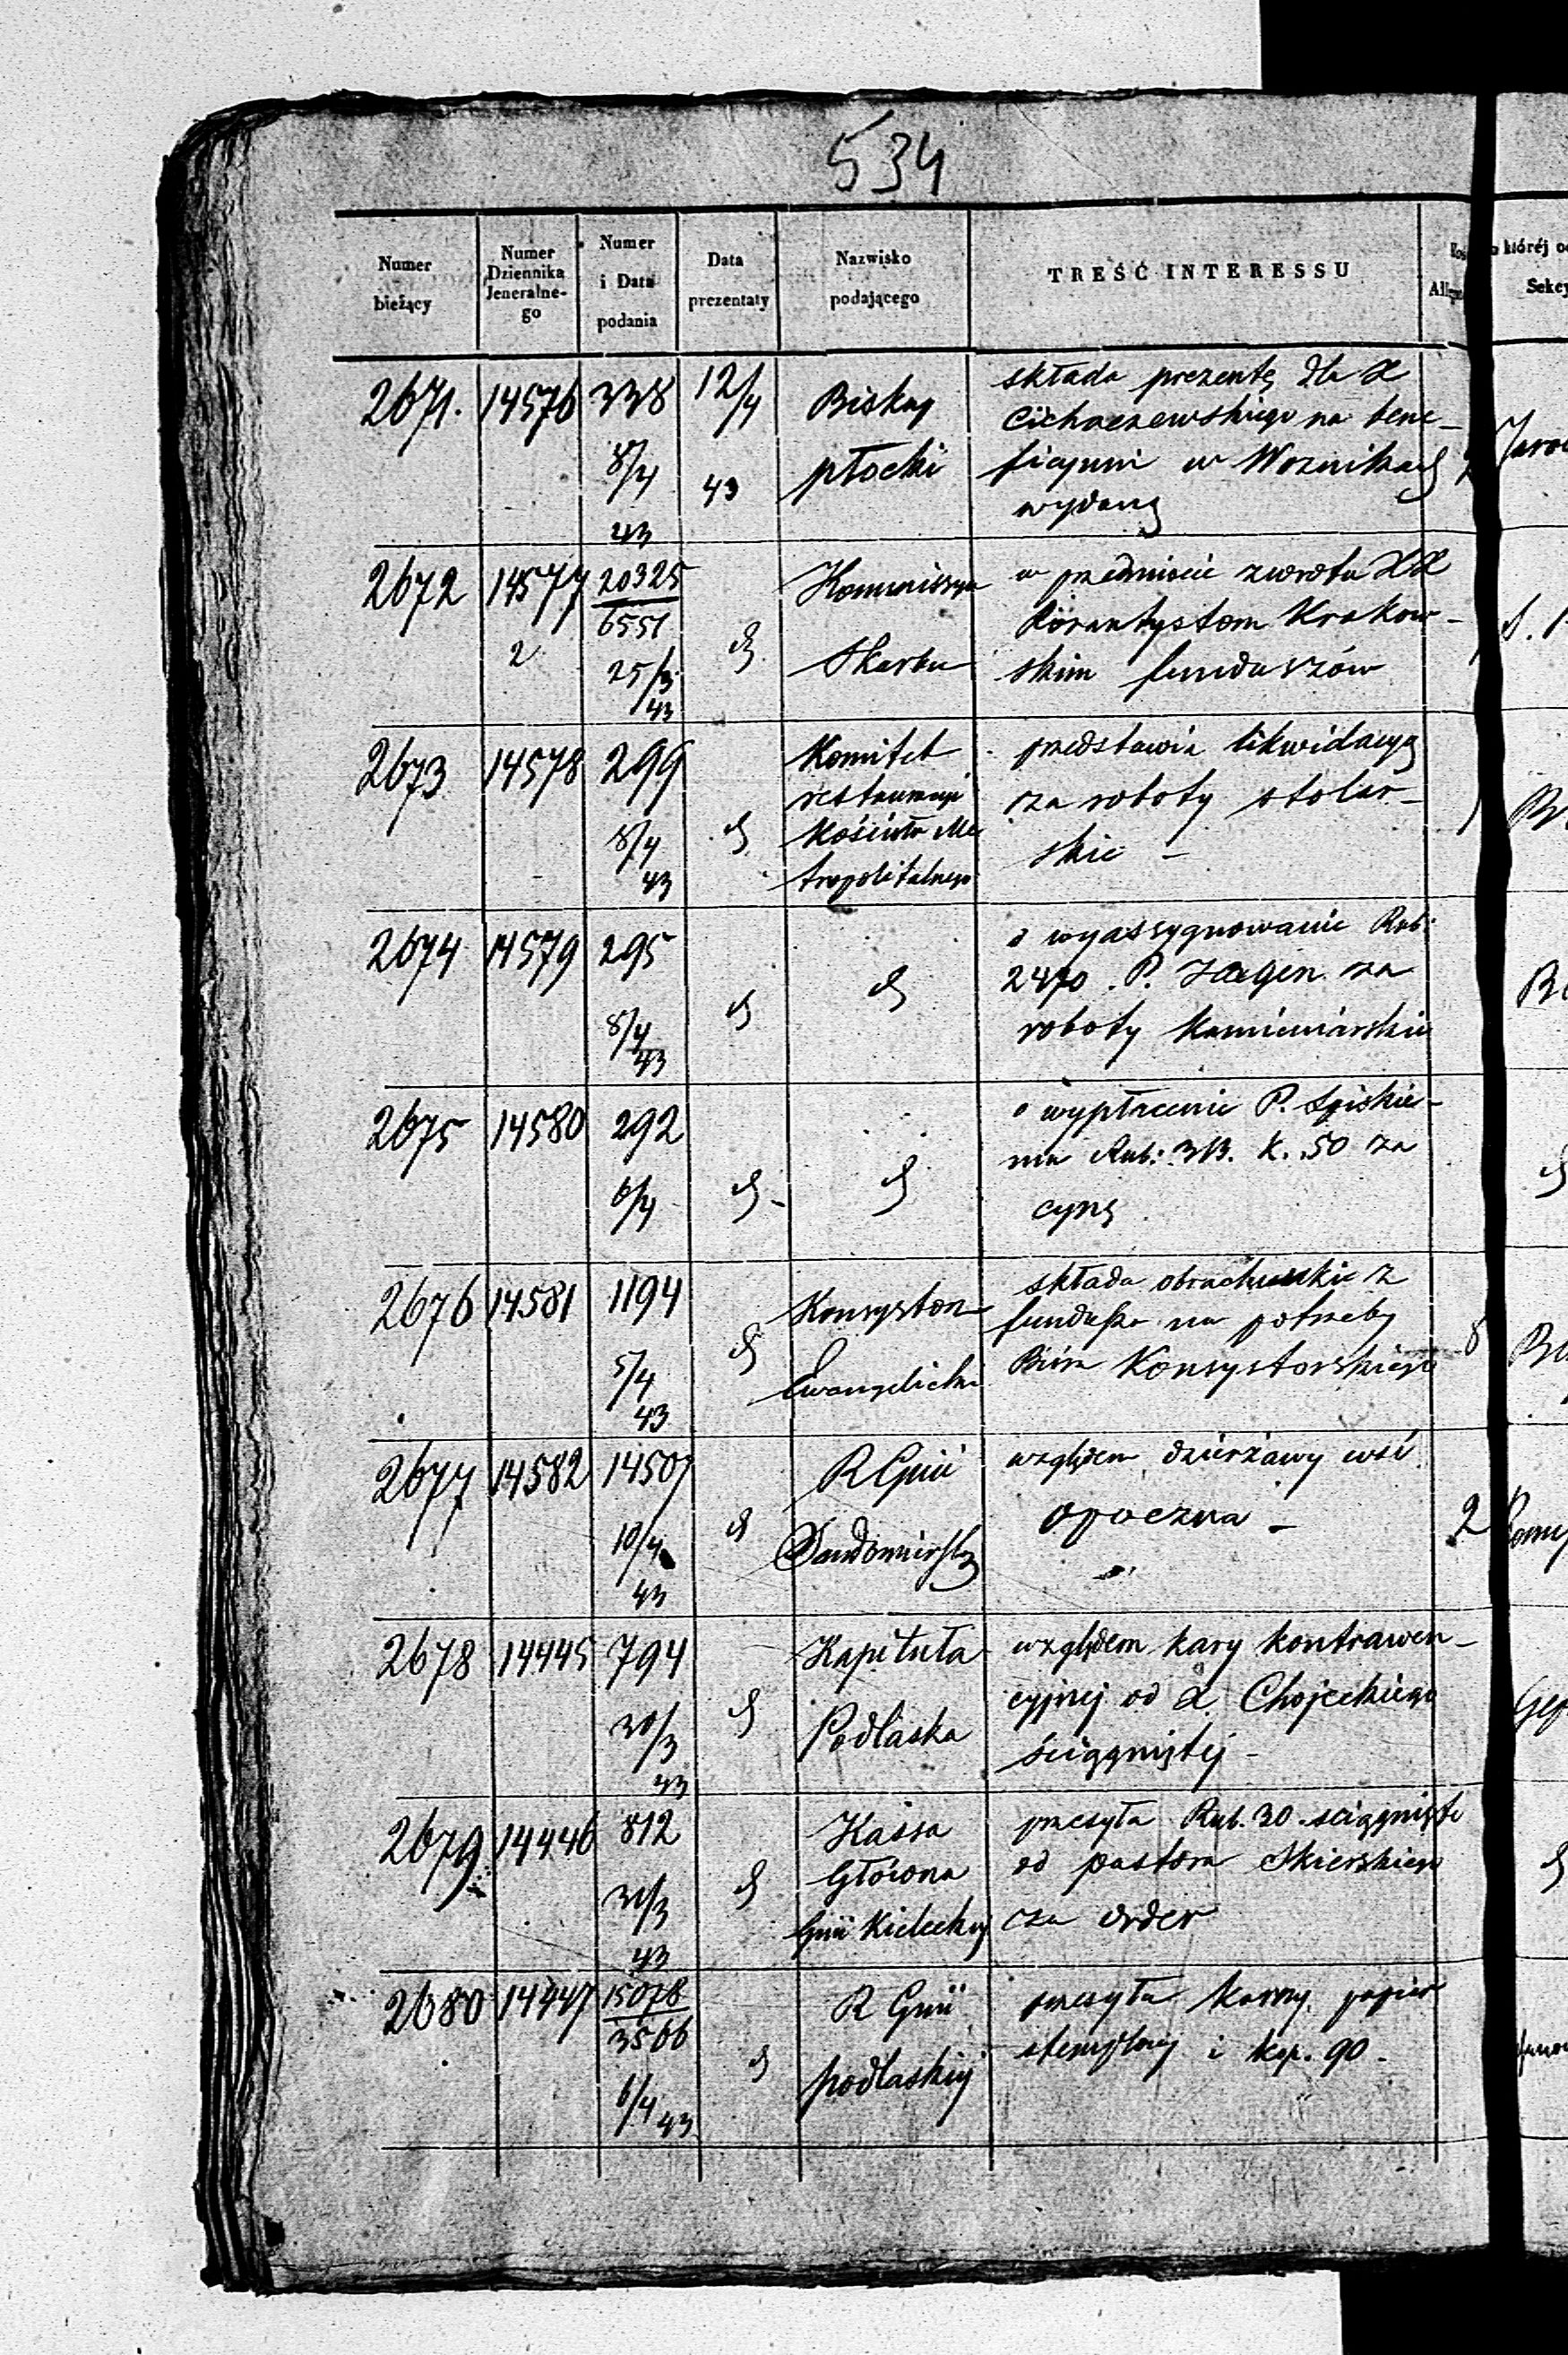 534
Numer bieżący
Numer Dziennika Jeneralne-go
Numer i Data podania
Data prezentaty
Nazwisko podającego
TREŚĆ INTERESSU
której
2671. 14576 338 8/4 43 12/4 43
Biskup
płocki
składa prezentę dla X
Cichaczewskiego na bene-
ficyum w Woznikach
wydaną
2672 14577 2 20325/6551 25/3 43 d
Kommissya
Skarbu
w przedmiocie zwrotu XX
Rorantystom Krakow-
skim funduszów
2673 14578 299 8/4 43 d
Komitet
restauracji
Kościoła Me
tropolitalnego
przedstawia likwidacyą
za roboty stolar-
skie -
2674 14579 295 8/4 43 d
d
o wyassygnowanie Rub:
2470 . P. za
roboty kamieniarskie
2675 14580 292 6/4 d -
d
o wypłacenie P.
Rub: 313. K. 50 za
cynę
2676 14581 1194 5/4 43 d
Konsystorz
Ewangelicki
składa obrachunki z
funduszu na potrzeby
Biura Konsystorskiego
8
2677 14582 14507 10/4 43 d
R Gnii
Sandomirsky
względem dzierżawy wsi
opoczna -
2
2678 14445 794 30/3 43 d
Kapituła
Podlaska
względem kary kontrawen-
cyjnej od X. Chojeckiego
ściągniętej -
2679 14446 812 31/3 43 d
Kassa
Główna
Gnii Kieleckiej
przesyła Rub. 30 sciągnięte
od pastora Skierskiego
za order
d
2680 14447 15078/3566 6/4 43 d
R Gnii
podlaskiej
przesyła karny papier
stemplowy i kop. 90 -